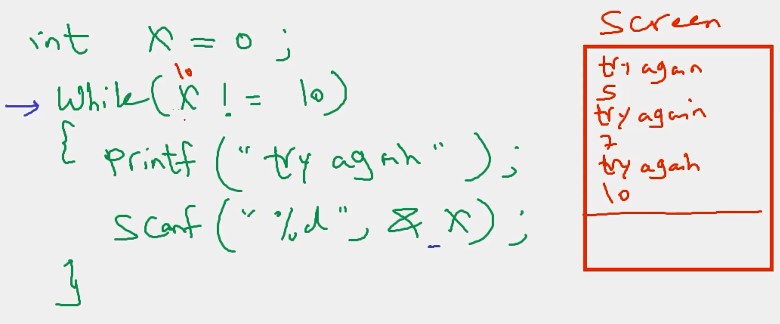 int x = 0 ;
10
while ( x ! = 10 )
{ printf ( " try again " ) ;
scanf ( " %d " , & x ) ;
}
Screen
try again
5
try again
7
try again
10